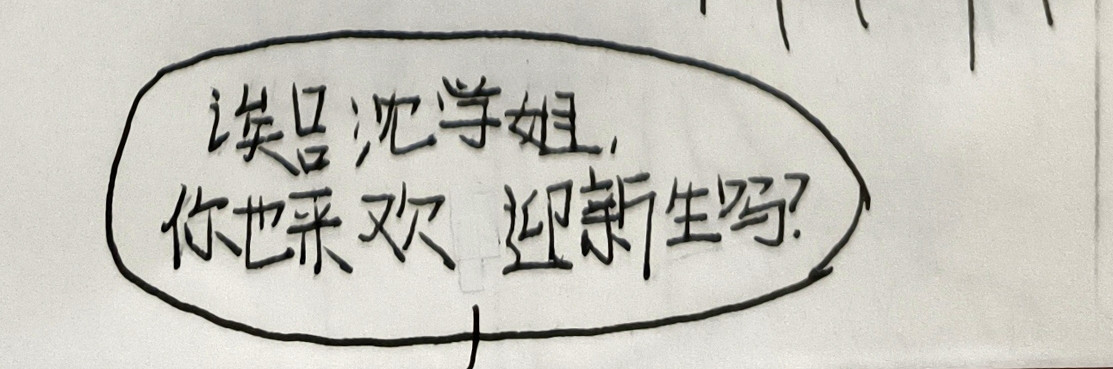 诶吕沈学姐,
你也来欢迎新生吗?